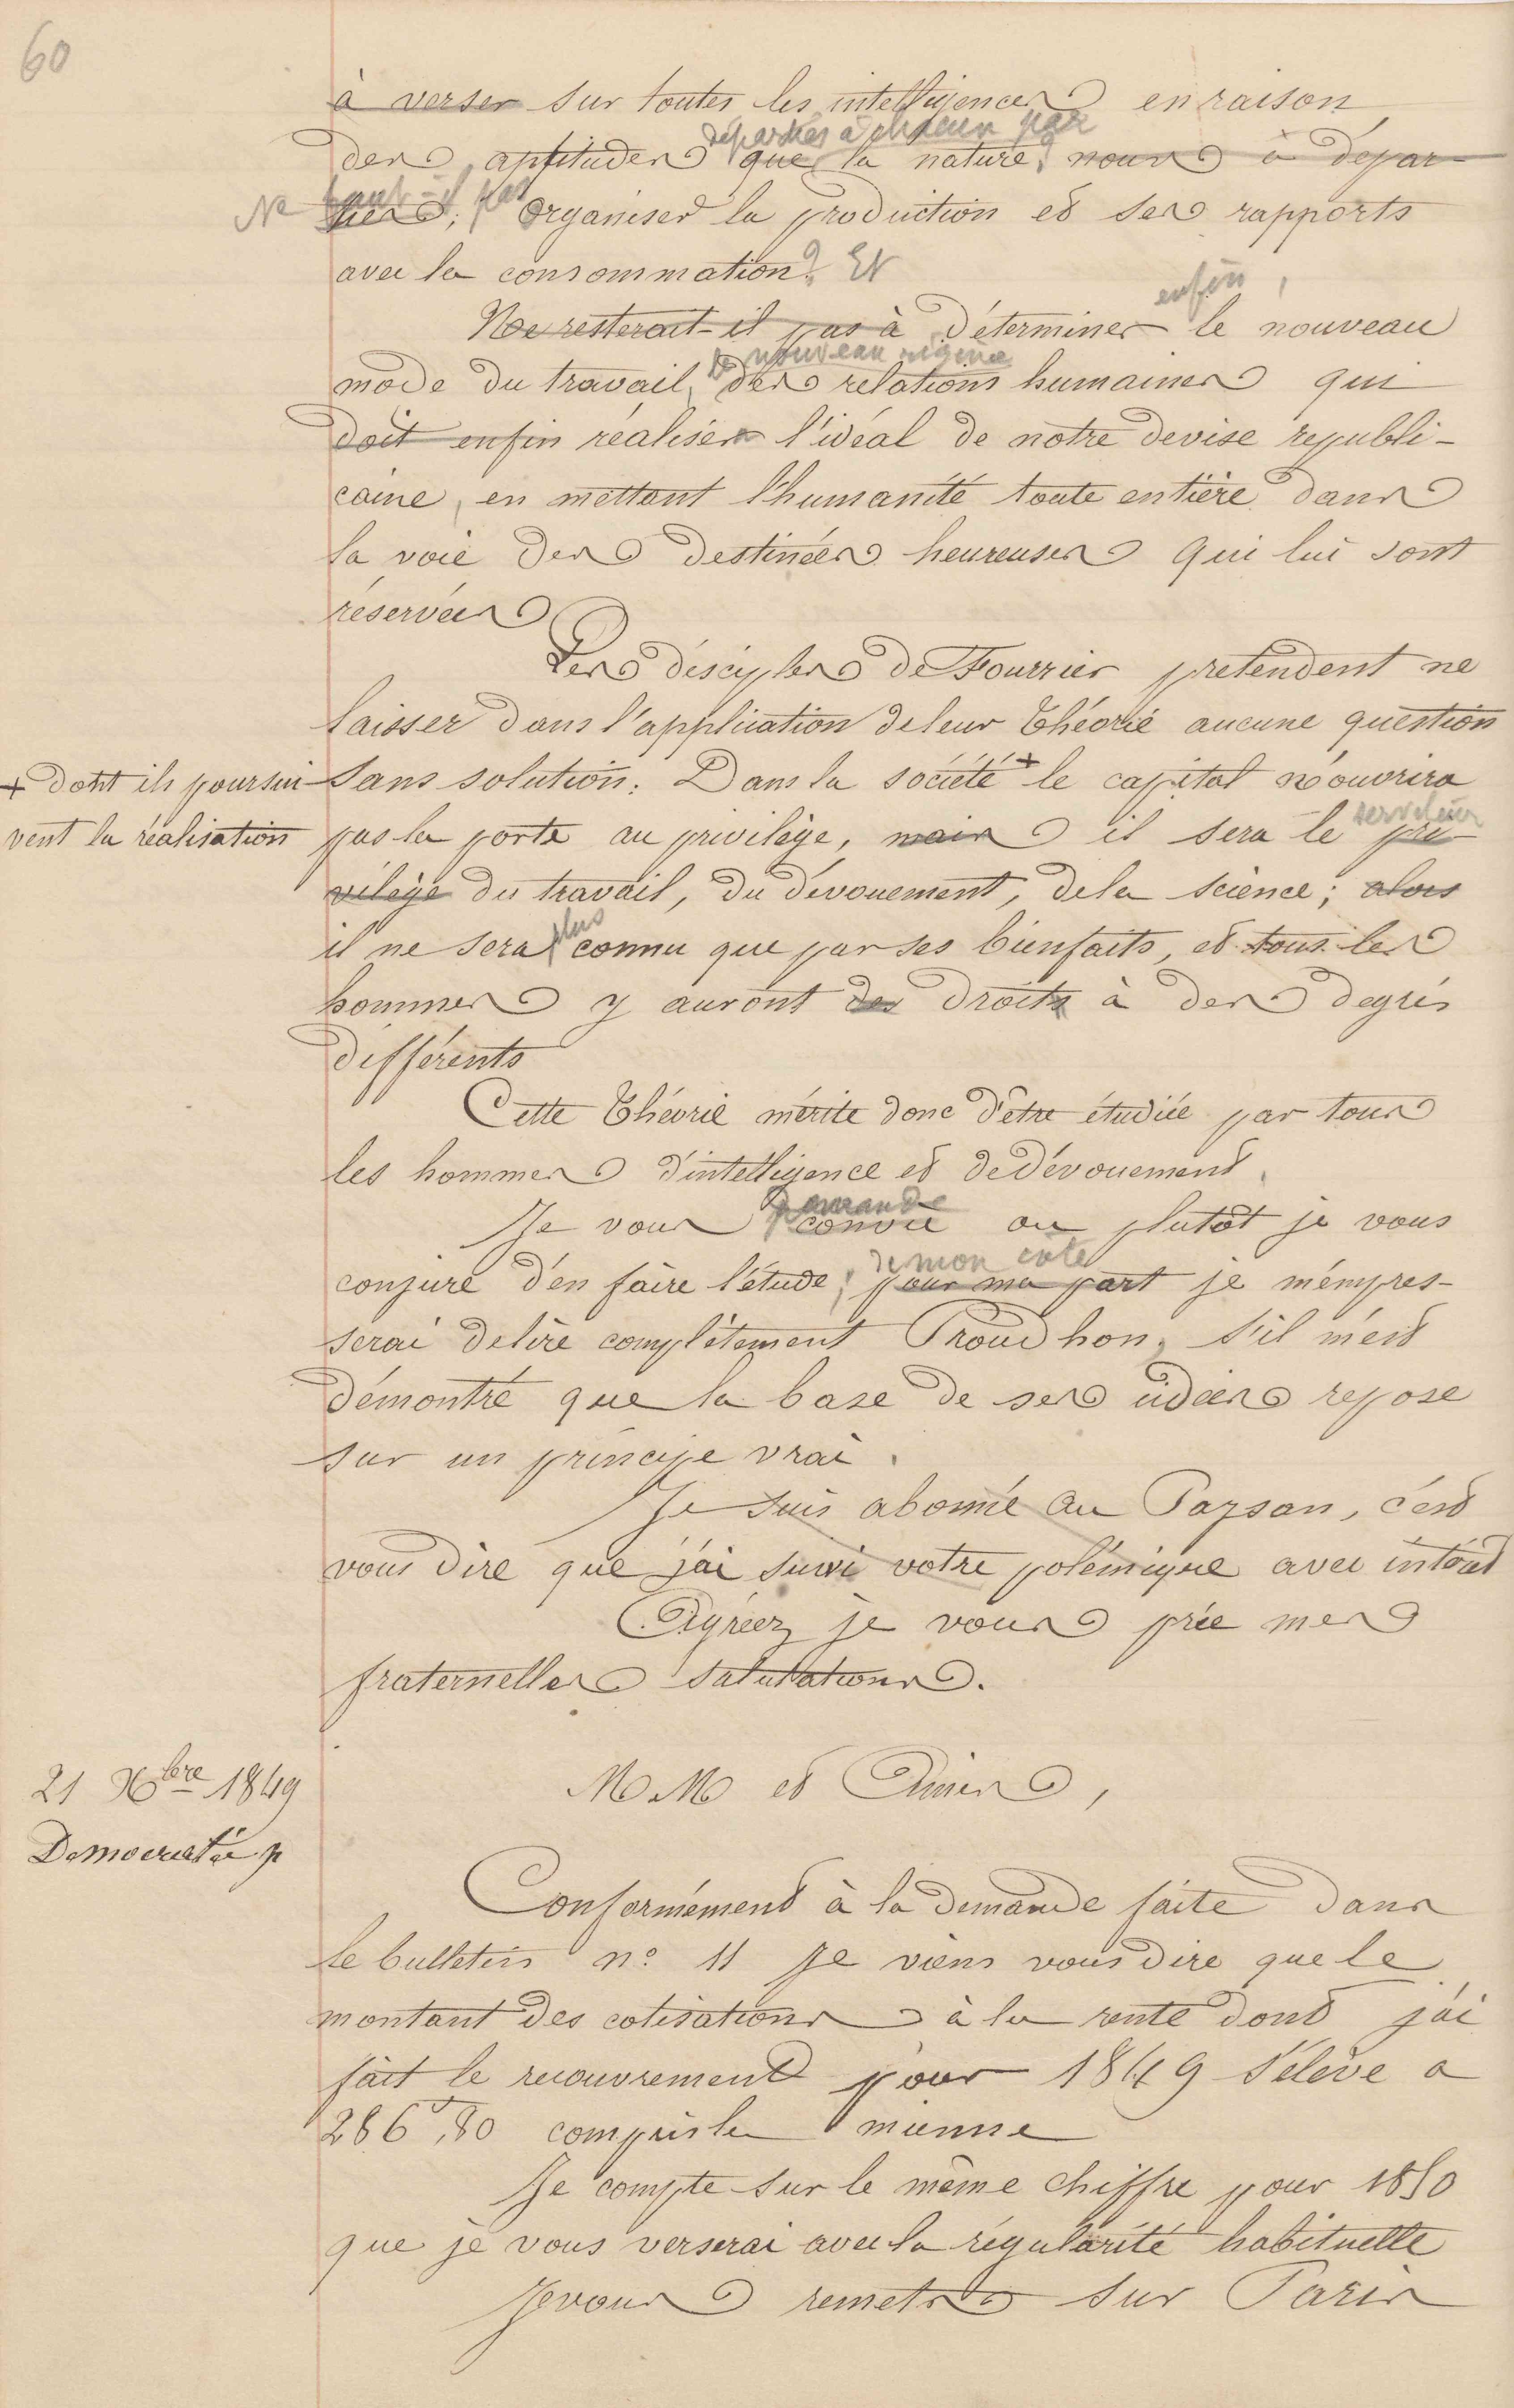 60
à verser sur toutes les intelligences en raison
départies à chacun par
des aptitudes que la nature nous a dépar-
Ne faut-il pas
ties; organiser la production et ses rapports
avec la consommation? Et
enfin,
Ne resterait-il pas à déterminer le nouveau
le nouveau régime
mode du travail, des relations humaines qui
doit enfin réaliser l'idéal de notre devise republi-
caine, en mettant l'humanité toute entière dans
la voie des destinées heureuses qui lui sont
réservées
Les disciples de Fourrier pretendent ne
laisser dans l'application de leur Théorie aucune question
+ dont ils poursui
sans solution. Dans la société + le capital n'ouvrira
vent la réalisation
serviteur
pas la porte au privilège, mais il sera le pri-
vilège du travail, du dévouement, de la science; alors
plus
il ne sera connu que par ses bienfaits, et tous les
hommes y auront des droits à des degrés
différents
Cette Théorie mérite donc d'être étudiée par tous
les hommes d'intelligence et de dévouement.
demande
Je vous convie ou plutôt je vous
de mon coté
conjure d'en faire l'étude, pour ma part je m'empres-
serai de lire complètement Proudhon, s'il m'est
démontré que la base de ses idées repose
sur un principe vrai.
Je suis abonné au Paysan, c'est
vous dire que j'ai suivi votre polémique avec intérêt
Agréez je vous prie mes
fraternelles salutations.
21 Xbre 1849
Democratie p
MM et Amis,
Conformément à la demande faite dans
le bulletin n° 11 je viens vous dire que le
montant des cotisations à la rente dont j'ai
fait le recouvrement pour 1849 s'élève a
286f,80 compris la mienne
Je compte sur le même chiffre pour 1850
que je vous verserai avec la régularité habituelle
Je vous remets sur Paris